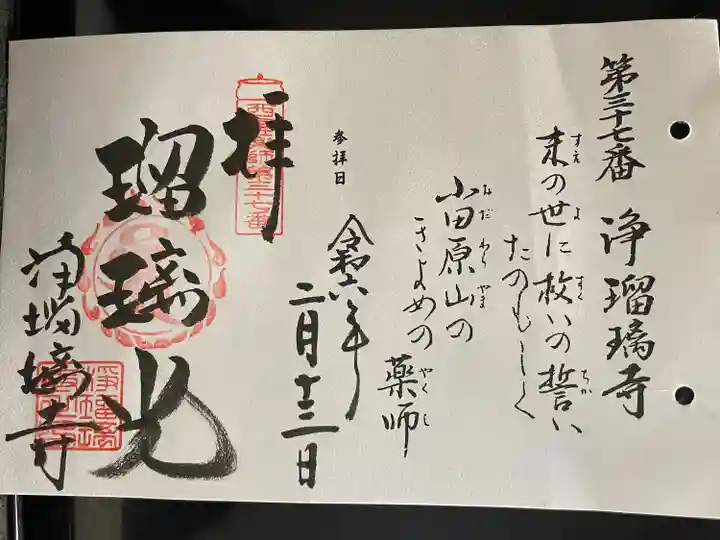 第三十七番 浄瑠璃寺
末の世に救いの誓い
すえ よ すく ちか
たのもしく
小田原山の
おだわらやま
きよめの薬師
やくし
参拝日
令和六年
二月十三日
拝
西国薬師第三十七番
瑠璃光
浄瑠璃寺